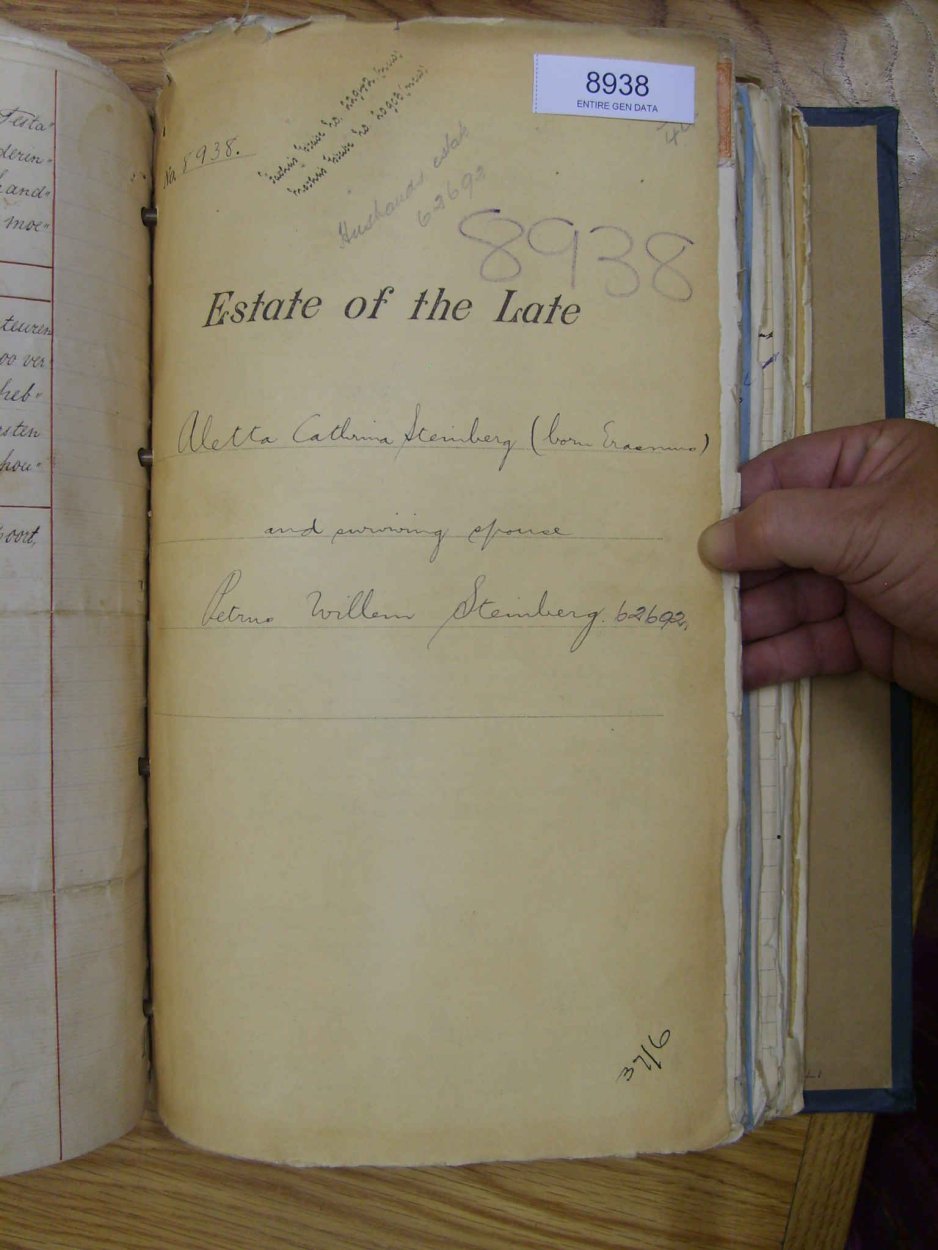 Testa"
derin"
and"
moe"
teuren
oo ver
heb"
sten
hou"
poort,
8938
ENTIRE GEN DATA
No. 8938.
40
Husband's estate
62692
8938
Estate of the Late
Aletta Cathrina Steinberg (born Erasmus)
and surviving spouse
Petrus Willem Steinberg. 62692.
37/6